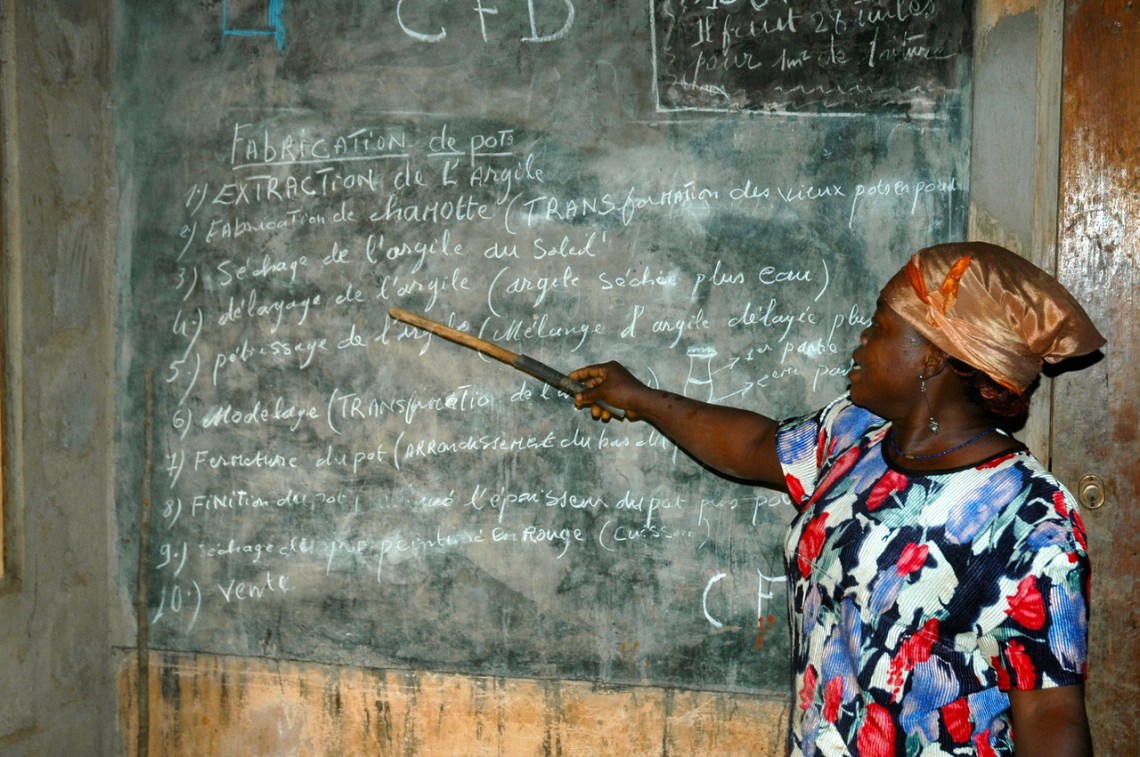 CFD
Il faut 28 tuiles
pour 1m² de toiture
FABRICATION de pots
1°) EXTRACTION de L'Argile
2) FABRICATION de chamotte (TRANSformation des vieux pots en poud
3) Séchage de l'argile au Soleil
4.) délayage de l'argile (argile séchée plus eau)
5.) pétrissage de l'argile (Mélange d'argile délayée plus
1er partie
2em par
6) Modelage (TRANSformation de l'
7) Fermeture du pot (ARRONDISSEMENT du bas du
8) Finition du pot l'épaisseur du pot
9.) Séchage peinture En Rouge
10.) Vente
CF